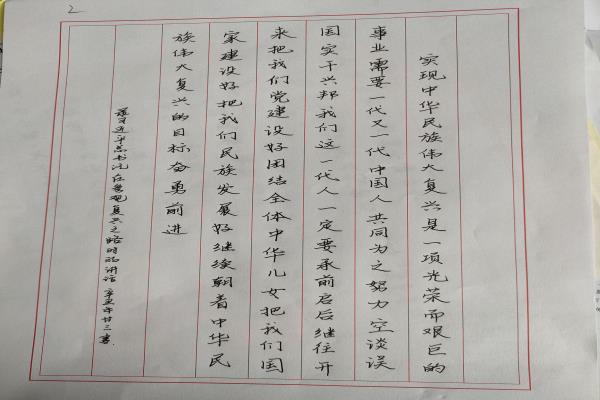 2
实现中华民族伟大复兴是一项光荣而艰巨的
事业需要一代又一代中国人共同为之努力空谈误
国实干兴邦我们这一代人一定要承前启后继往开
来把我们党建设好团结全体中华儿女把我们国
家建设好把我们民族发展好继续朝着中华民
族伟大复兴的目标奋勇前进
录习近平总书记在参观复兴之路时的讲话 辛丑年廿三書